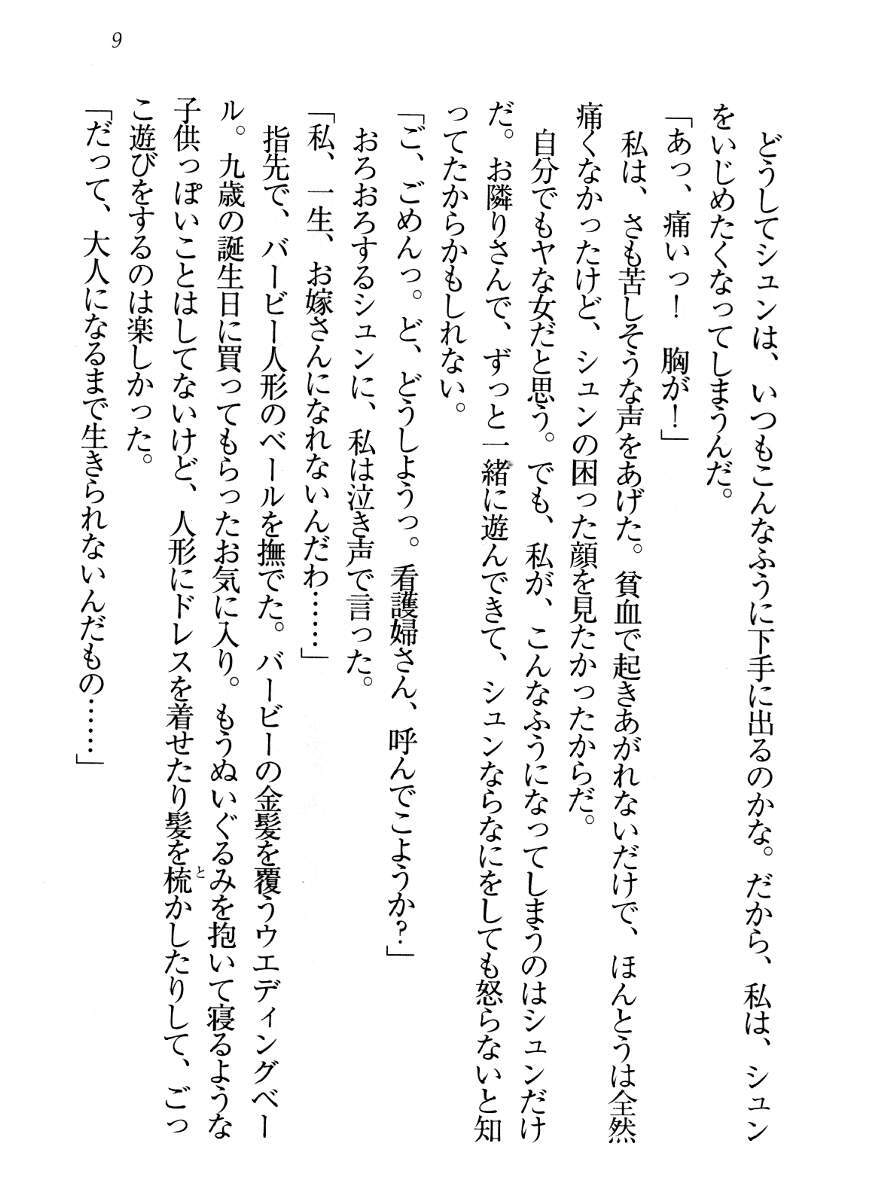 9
どうしてシュンは、いつもこんなふうに下手に出るのかな。だから、私は、シュン
をいじめたくなってしまうんだ。
「あっ、痛いっ！　胸が！」
私は、さも苦しそうな声をあげた。貧血で起きあがれないだけで、ほんとうは全然
痛くなかったけど、シュンの困った顔を見たかったからだ。
自分でもヤな女だと思う。でも、私が、こんなふうになってしまうのはシュンだけ
だ。お隣りさんで、ずっと一緒に遊んできて、シュンならなにをしても怒らないと知
ってたからかもしれない。
「ご、ごめんっ。ど、どうしようっ。看護婦さん、呼んでこようか？」
おろおろするシュンに、私は泣き声で言った。
「私、一生、お嫁さんになれないんだわ……」
指先で、バービー人形のベールを撫でた。バービーの金髪を覆うウエディングベー
ル。九歳の誕生日に買ってもらったお気に入り。もうぬいぐるみを抱いて寝るような
子供っぽいことはしてないけど、人形にドレスを着せたり髪を梳かしたりして、ごっ
こ遊びをするのは楽しかった。
「だって、大人になるまで生きられないんだもの……」
と